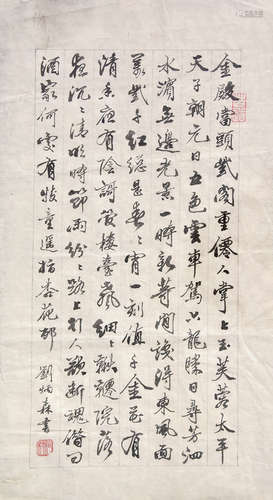 金殿當頭紫閣重僊人掌上玉芙蓉太平
天子朝元日五色雲車駕六龍勝日尋芳泗
水濱無邊光景一時新等閒識得東風面
萬紫千紅總是春〻宵一刻值千金花有
清香月有陰謌管樓臺聲細〻鞦韆院落
夜沉〻清明時節雨紛〻路上行人欲斷魂借问
酒家何處有牧童遥指杏花邨
劉炳森書